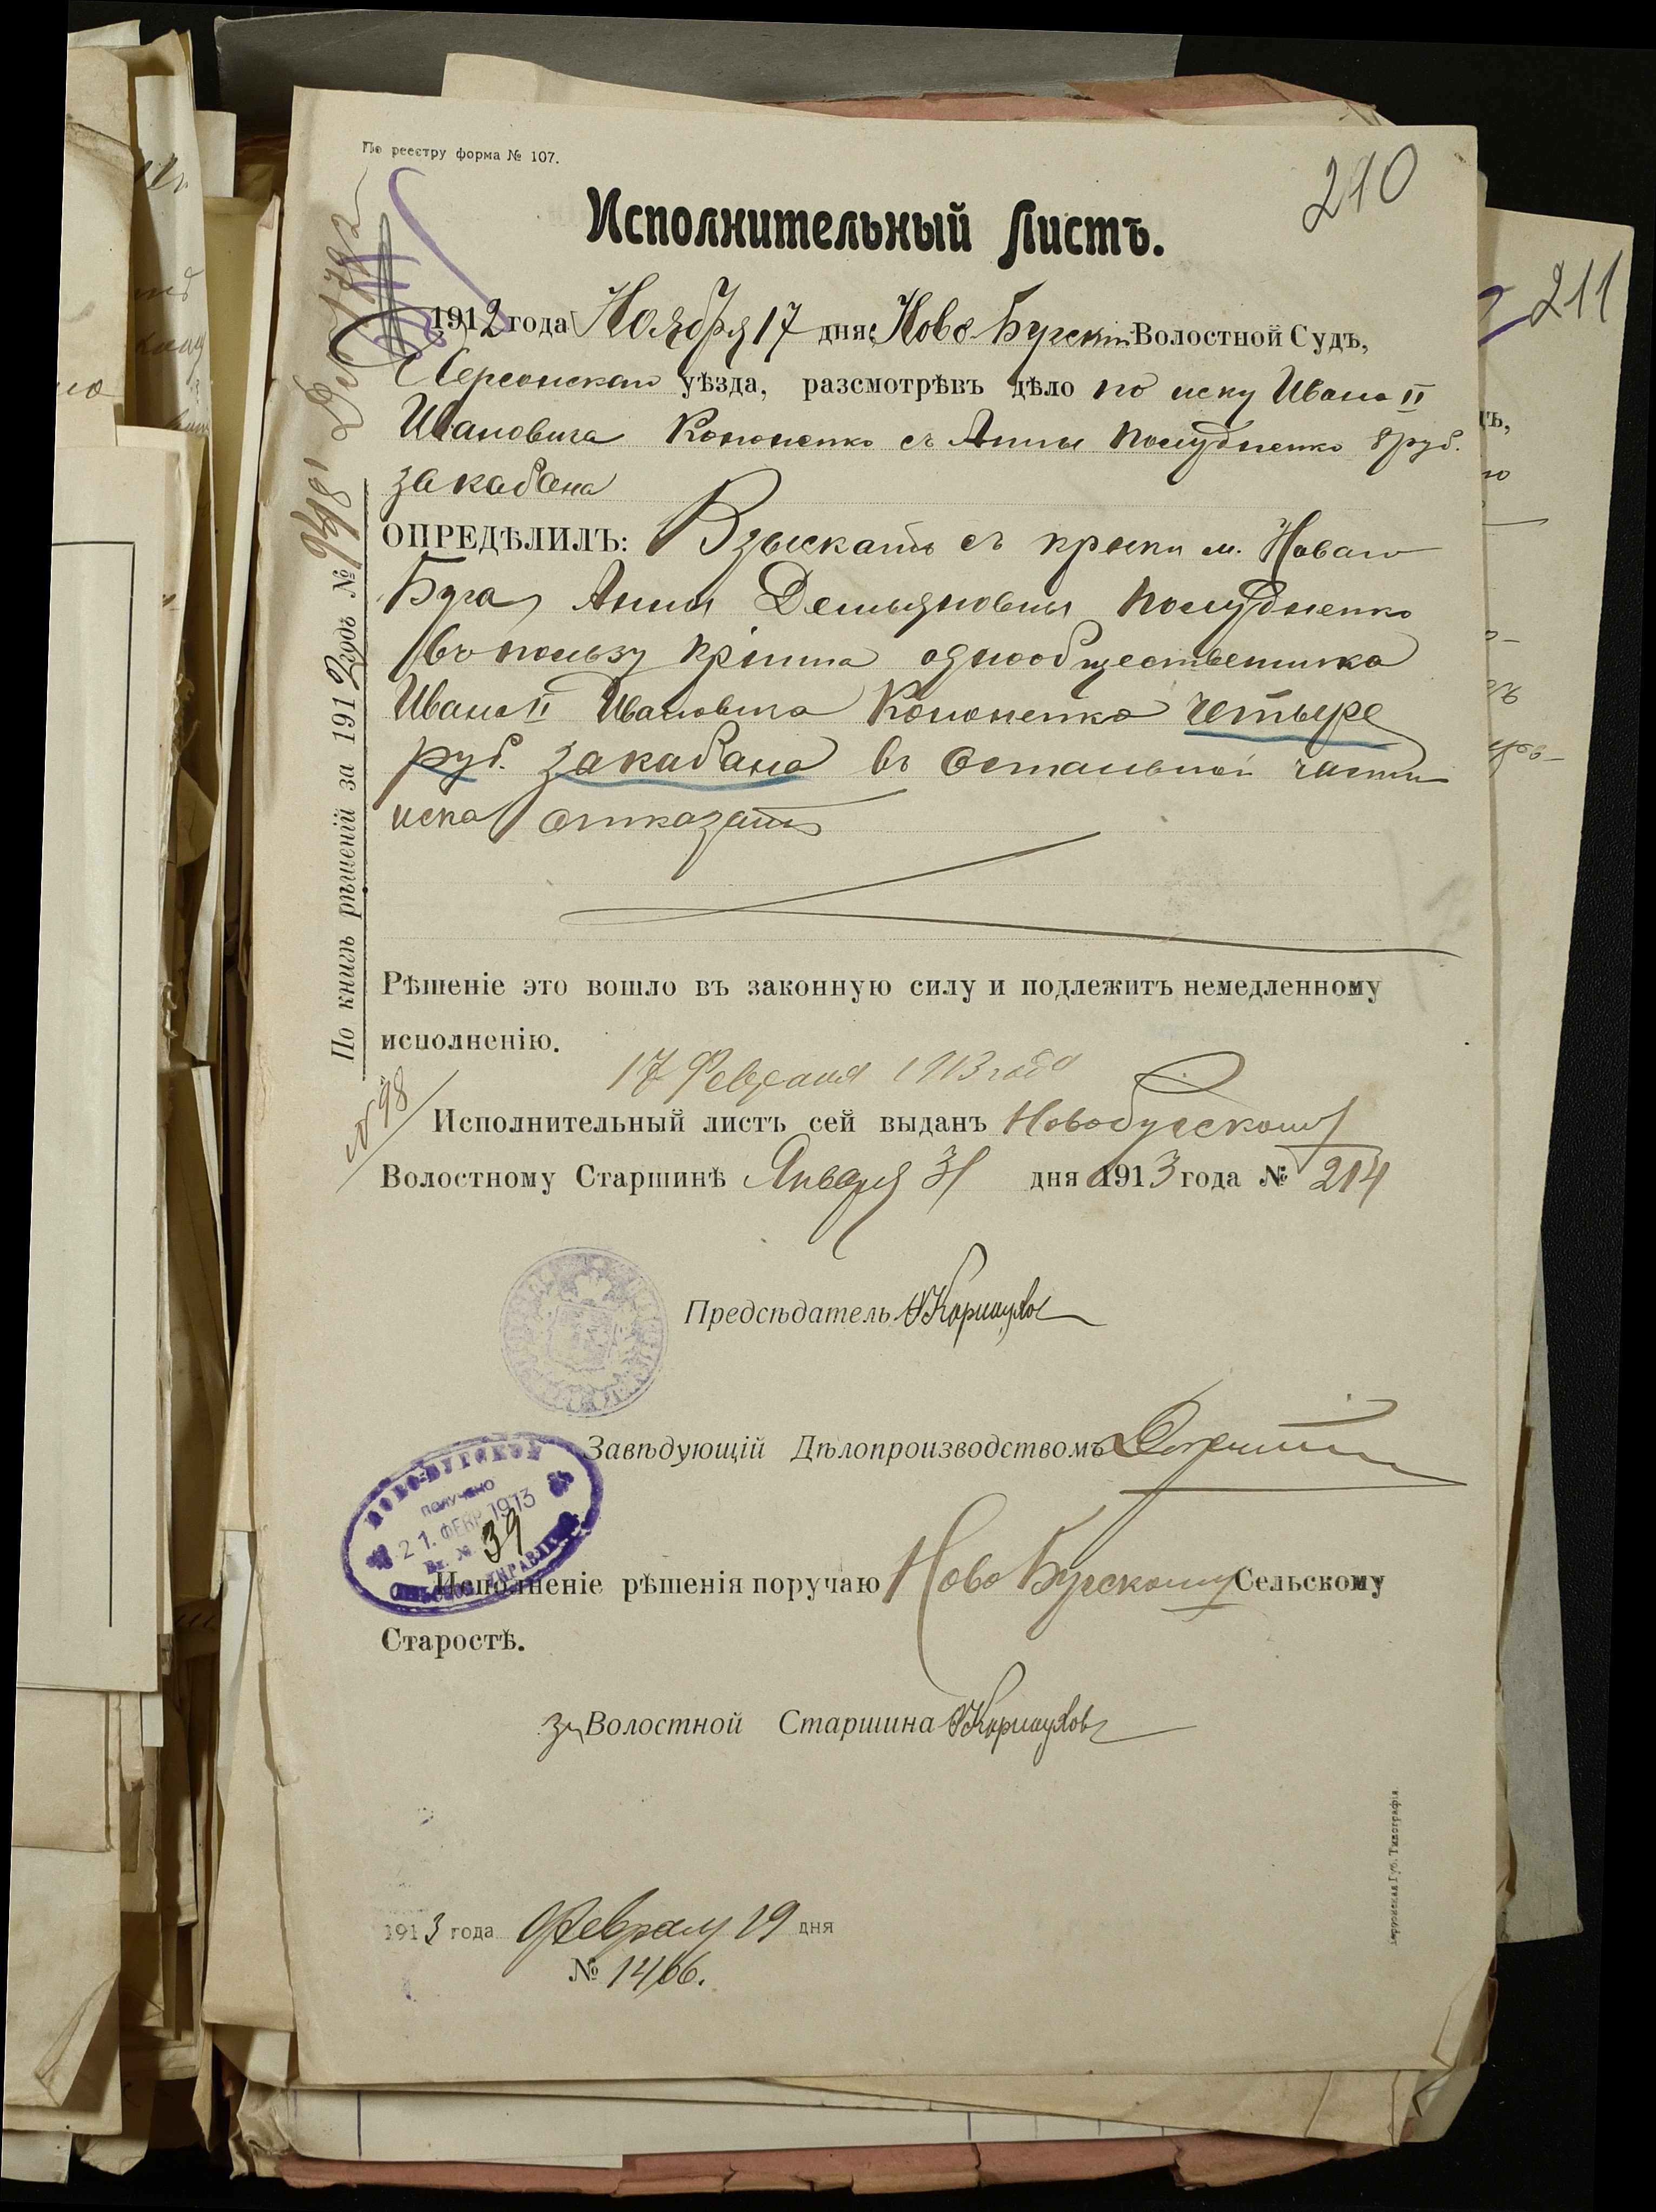 По реестру форма № 107.
210
Исполнительный Листъ.
1912 года Ноября 17 дня Ново-Бугскій Волостной Судъ,
Херсонскаго уѣзда, разсмотрѣвъ дѣло по иску Ивана II
Ивановича Кононенко съ Анны Полудненко 8 руб.
за кабана
ОПРЕДѢЛИЛЪ: Взыскать съ крнки м. Новаго
Буга, Анны Демьяновны Полудненко
въ пользу крнина однообщественника
Ивана II Ивановича Кононенко четыре
руб. за кабана въ остальной части
иска отказать
Рѣшеніе это вошло въ законную силу и подлежитъ немедленному
исполненію.
17 Февраля 1913 года
№ 98
Исполнительный листъ сей выданъ Новобугскому
Волостному Старшинѣ Января 31 дня 1913 года № 214
Предсѣдатель
Завѣдующій Дѣлопроизводствомъ
НОВО-БУГСКОЕ
получено
21. ФЕВР 1913
Вх. № 39
СЕЛЬСКОЕ УПРАВЛЕН.
Исполненіе рѣшенія поручаю Ново Бугскому Сельскому
Старостѣ.
за Волостной Старшина
1913 года Февраля 19 дня
№ 1466.
По книгѣ рѣшеній за 1912 годъ № 948
Херсонская Губ. Типографія
211